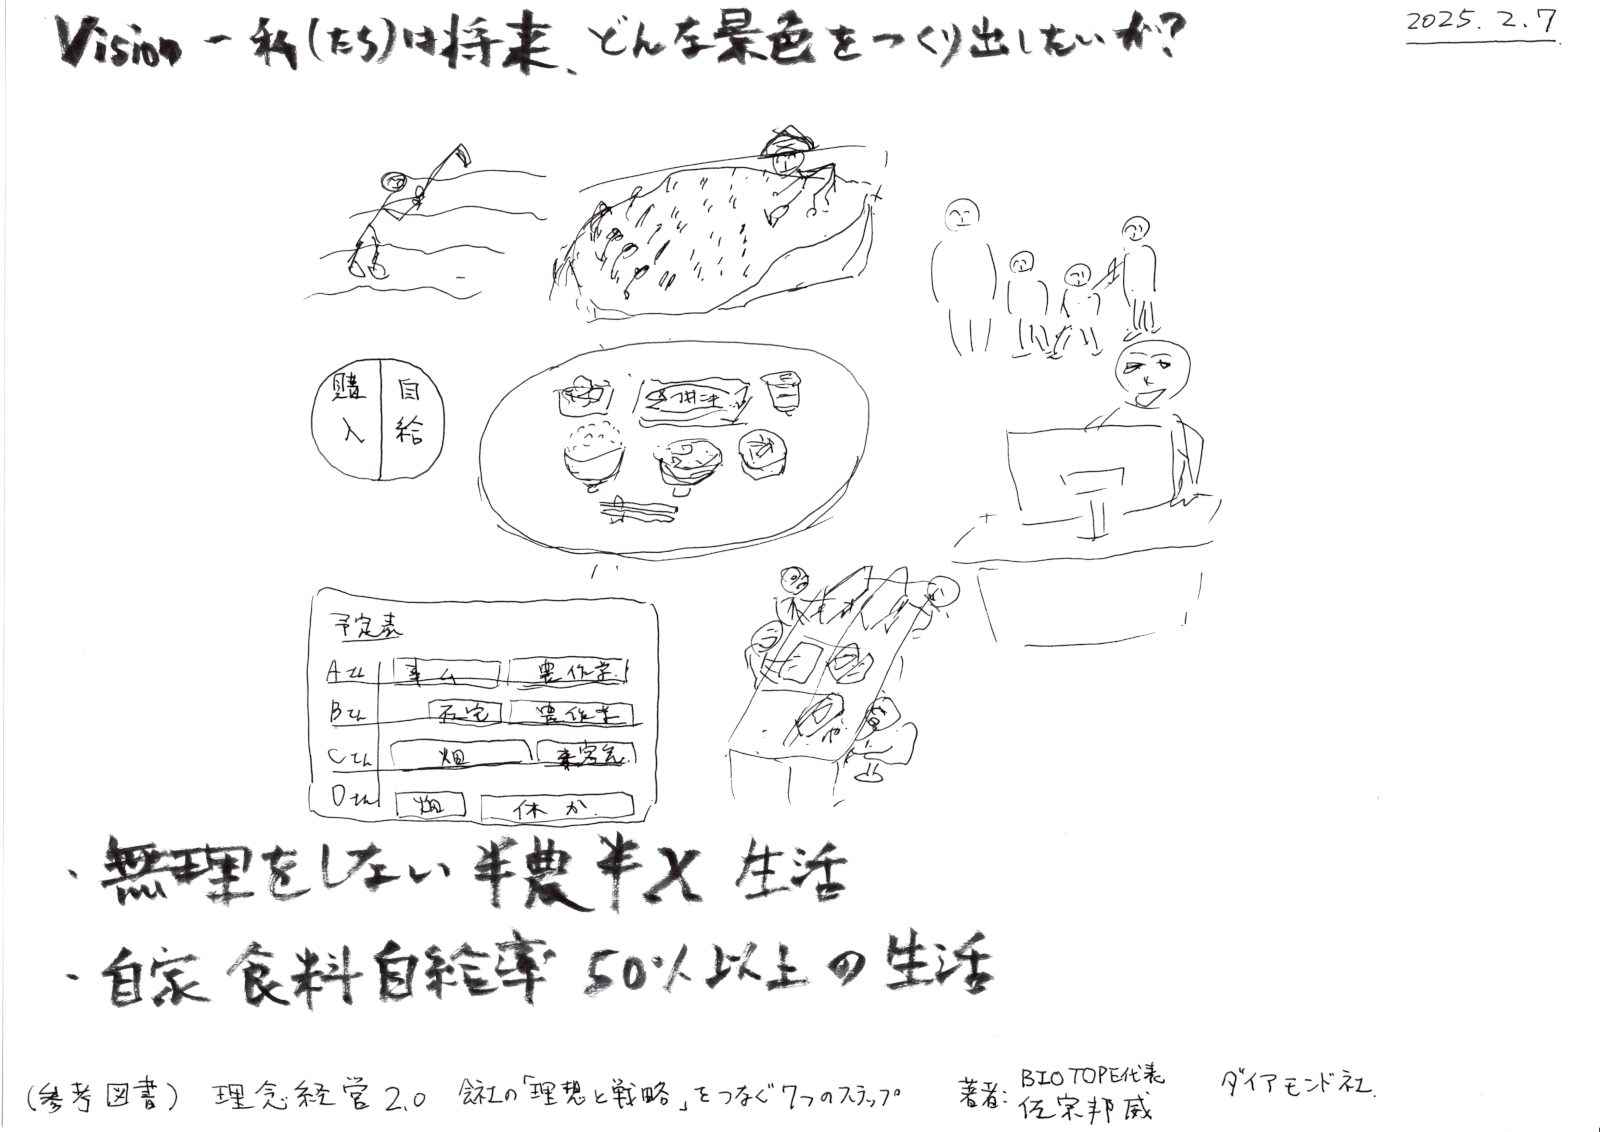 Vision - 私(たち)は将来、どんな景色をつくり出したいか?
2025.2.7
購入
自給
予定表
Aさん
農作業
Bさん
在宅
農作業
Cさん
畑
Dさん
畑
休か
・無理をしない半農半X生活
・自家食料自給率50%以上の生活
(参考図書) 理念経営2.0 会社の「理想と戦略」をつなぐ7つのステップ 著者: BIOTOPE代表 佐宗邦威 ダイアモンド社.